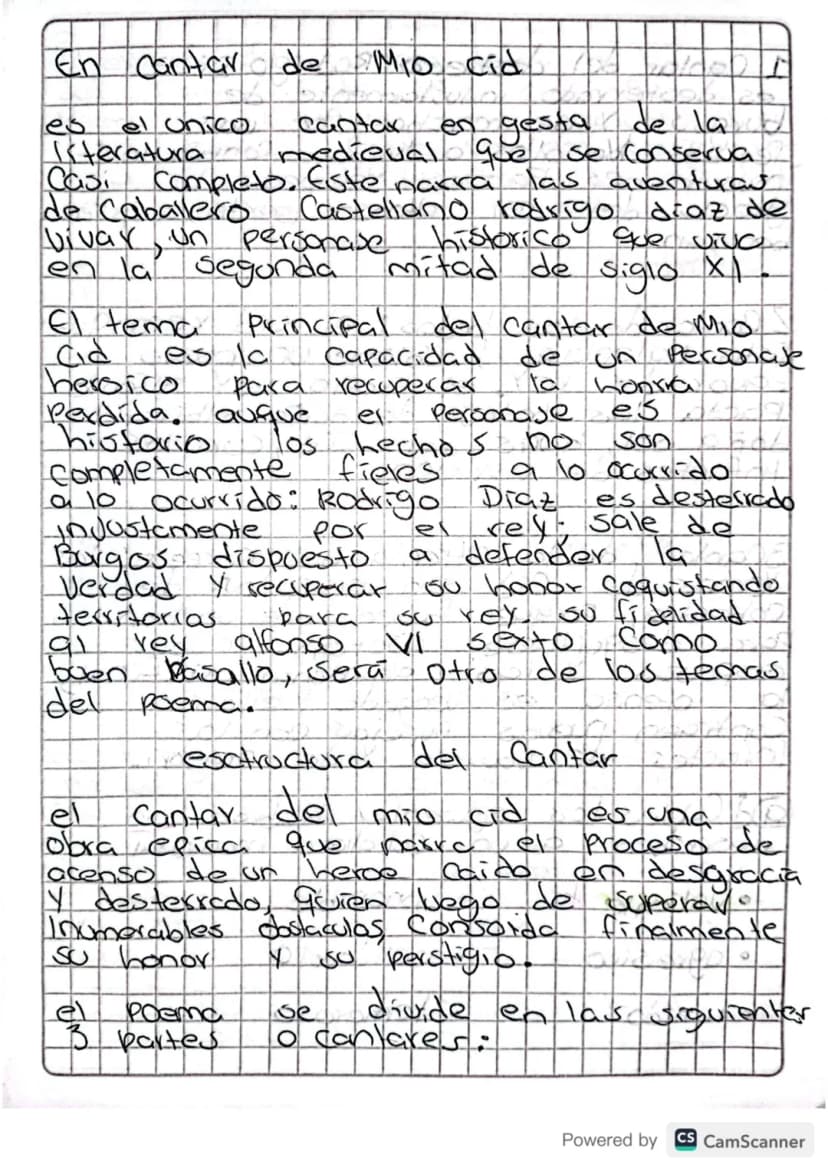 En Cantar de Mio cid
1
es el unico cantar en gesta de la
literatura medieval que se conserva
Casi Completo. Este narra las aventuras
de Caballero Castellano rodrigo diaz de
vivar, un personase historico que vivo
en la segunda mitad de siglo XI.
El tema Principal del cantar de Mio
Cid es la capacidad de un Personaje
heroico para recuperar la honra
Perdida. auque el Personase es
historio los hechos no son
completamente fieles a lo ocurrido
a lo ocurrido: Rodrigo Diaz es desterrado
injustamente por el rey; sale de
Burgos dispuesto a defender la
verdad y recuperar su honor coquistando
territorias para su rey. su fidelidad
al rey alfonso VI sexto Como
buen basallo, será otro de los temas
del poema.
esctructura del Cantar
el Cantar del mio cid es una
obra epica que narra el proceso de
acenso de un heroe Caido en desgracia
y desterrado, quien luego de superar
Inumerables obstaculos, Consoida finalmente
su honor y su perstigio.
el poema se divide en las siguienter
3 partes o cantares:
Powered by CS CamScanner